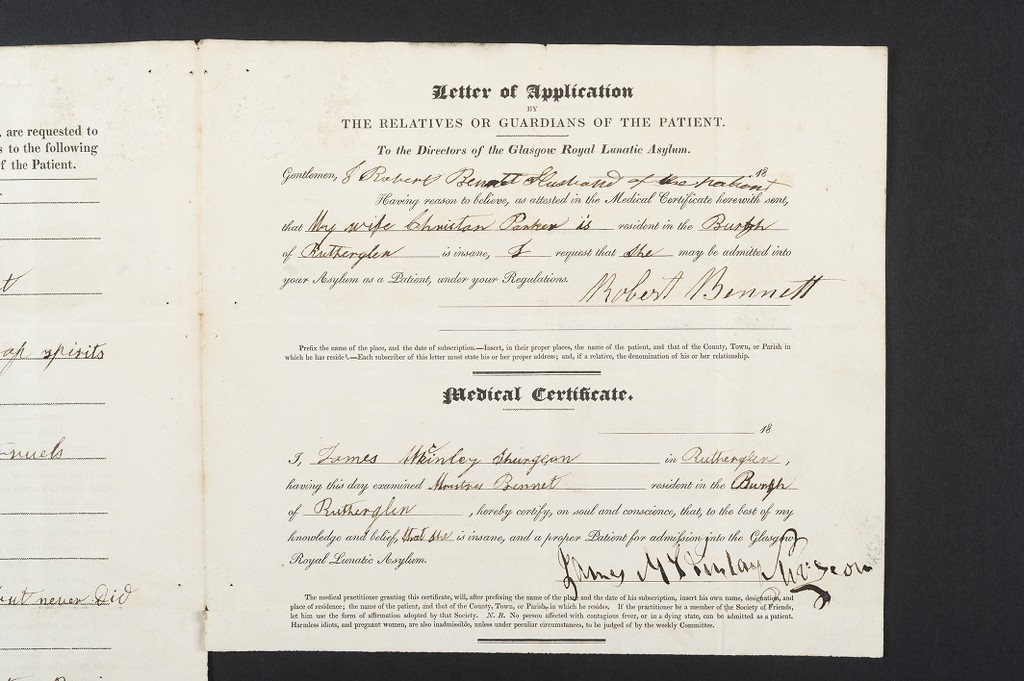 , are requested to
s to the following
f the Patient.
t
ap spirits
ruels
but never Did
Letter of Application
BY
THE RELATIVES OR GUARDIANS OF THE PATIENT.
To the Directors of the Glasgow Royal Lunatic Asylum.
18
Gentlemen, I Robert Bennett Husband of the patient
Having reason to believe, as attested in the Medical Certificate herewith sent,
that My wife Christan Parker is resident in the Burgh
of Rutherglen is insane, I request that she may be admitted into
your Asylum as a Patient, under your Regulations.
Robert Bennett
Prefix the name of the place, and the date of subscription.—Insert, in their proper places, the name of the patient, and that of the County, Town, or Parish in
which he has resided.—Each subscriber of this letter must state his or her proper address; and, if a relative, the denomination of his or her relationship.
Medical Certificate.
18
I, James McKinley Shurgeon in Rutherglen,
having this day examined Mistres Bennet resident in the Burgh
of Rutherglin, hereby certify, on soul and conscience, that, to the best of my
knowledge and belief, that she is insane, and a proper Patient for admission into the Glasgow
Royal Lunatic Asylum.
James McKinlay Surgeon
The medical practitioner granting this certificate, will, after prefixing the name of the place and the date of his subscription, insert his own name, designation, and
place of residence; the name of the patient, and that of the County, Town, or Parish, in which he resides. If the practitioner be a member of the Society of Friends,
let him use the form of affirmation adopted by that Society. N. B. No person affected with contagious fever, or in a dying state, can be admitted as a patient.
Harmless idiots, and pregnant women, are also inadmissible, unless under peculiar circumstances, to be judged of by the weekly Committee.